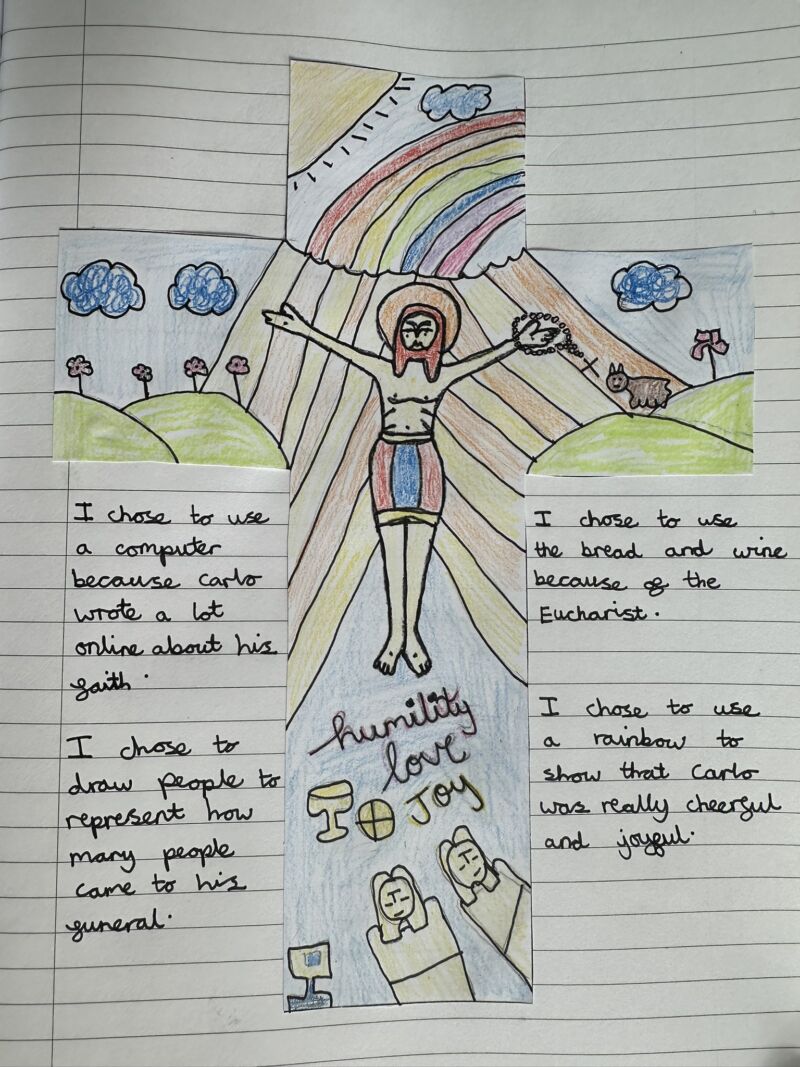 I chose to use
a computer
because Carlo
wrote a lot
online about his
faith.
I chose to
draw people to
represent how
many people
came to his
funeral.
humility
love
Joy
I chose to use
the bread and wine
because of the
Eucharist.
I chose to use
a rainbow to
show that Carlo
was really cheerful
and joyful.